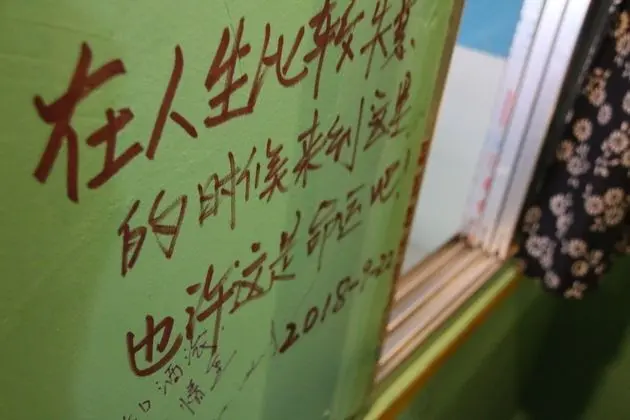 在人生比较失意
的时候来到这里
也许这是命运吧！
2018-9-22
口酒浓
情